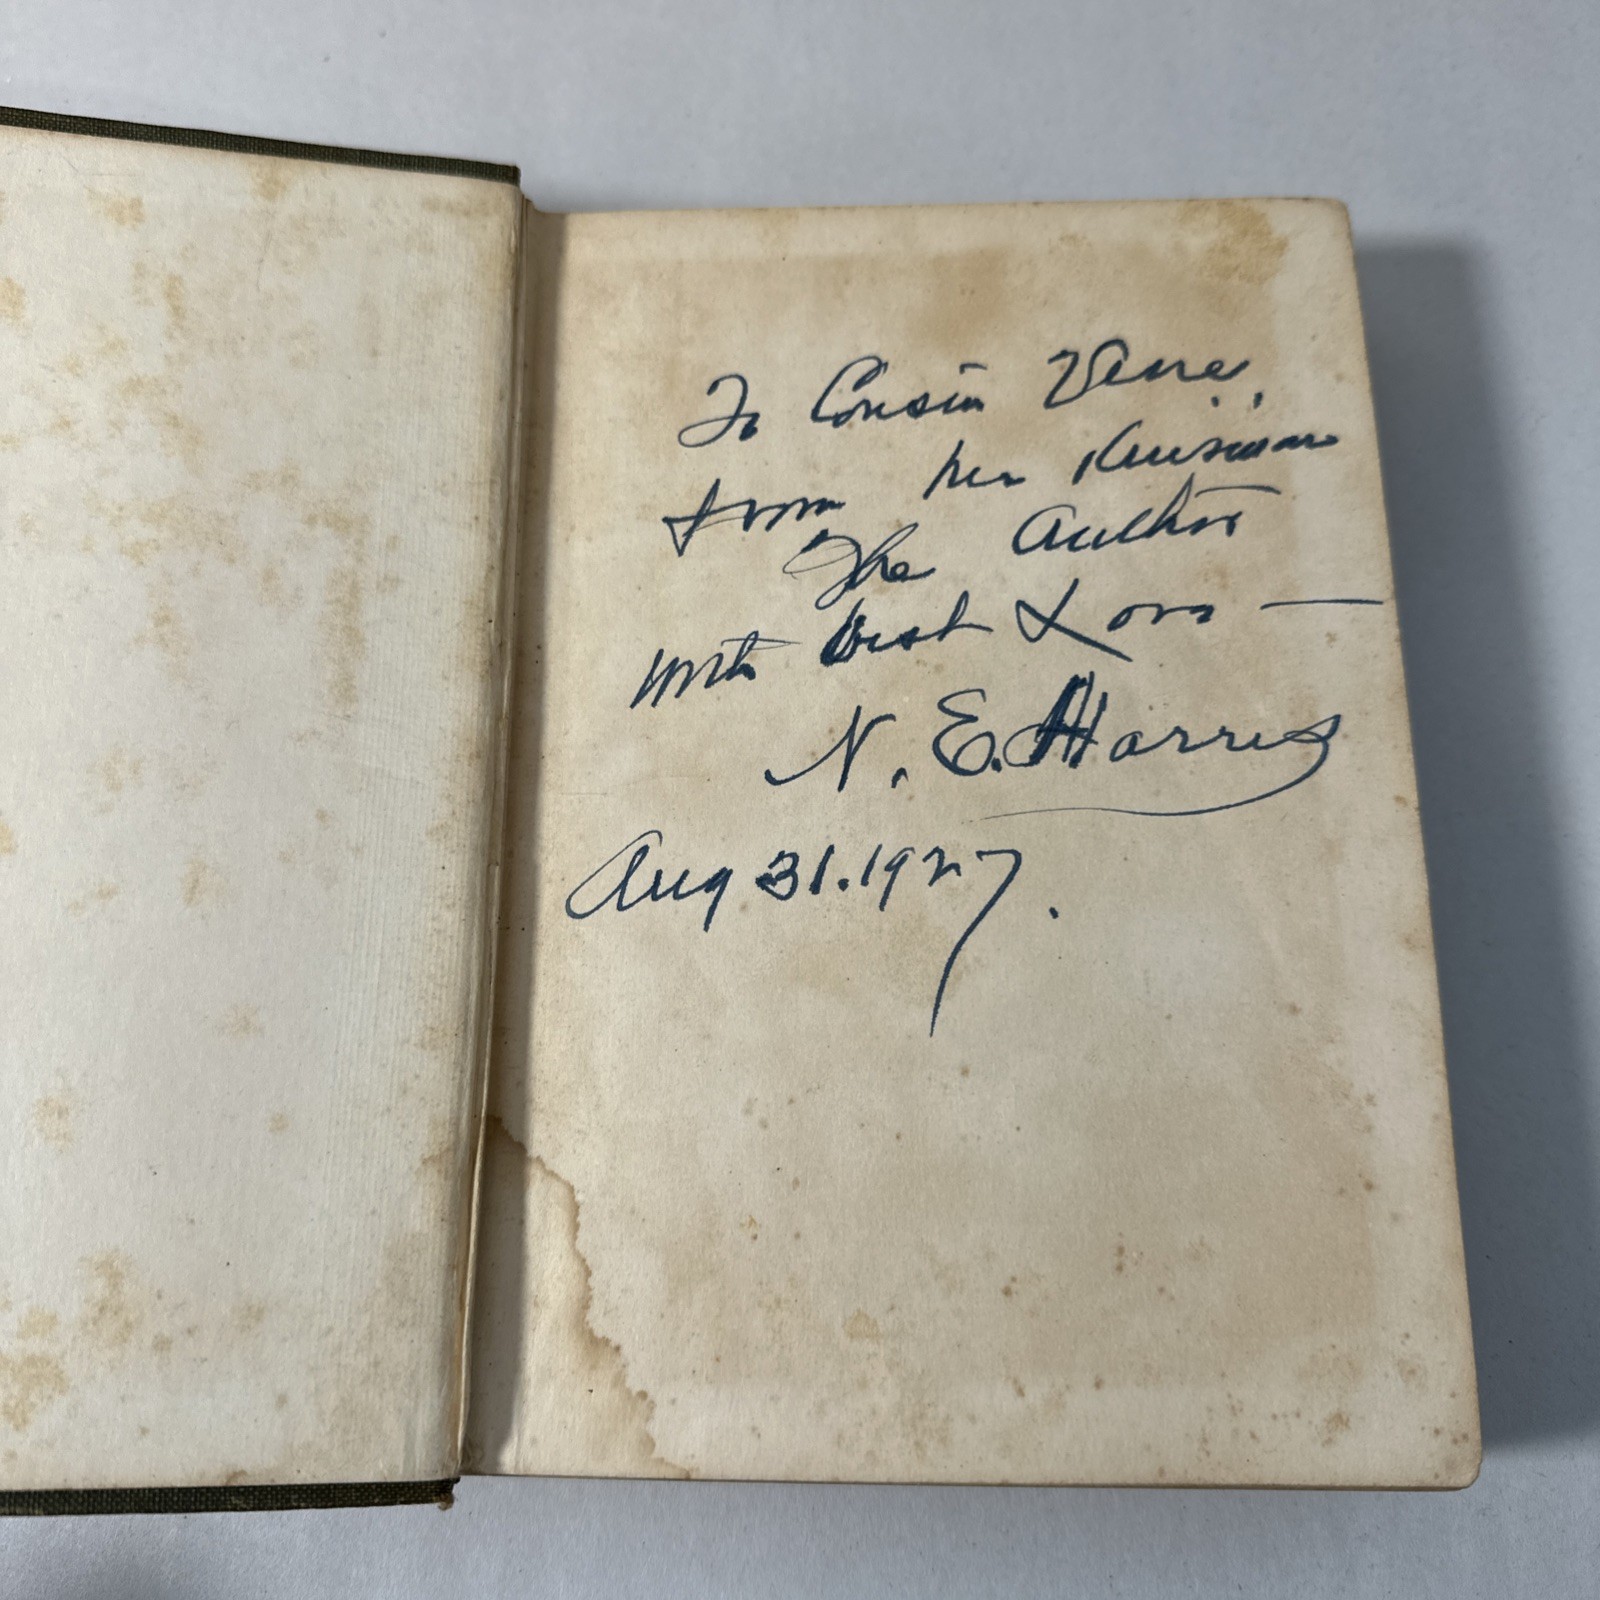 To Cousin
from her Kinsman
The Author
with best Love —
N. E. Harris
Aug 31. 1927.